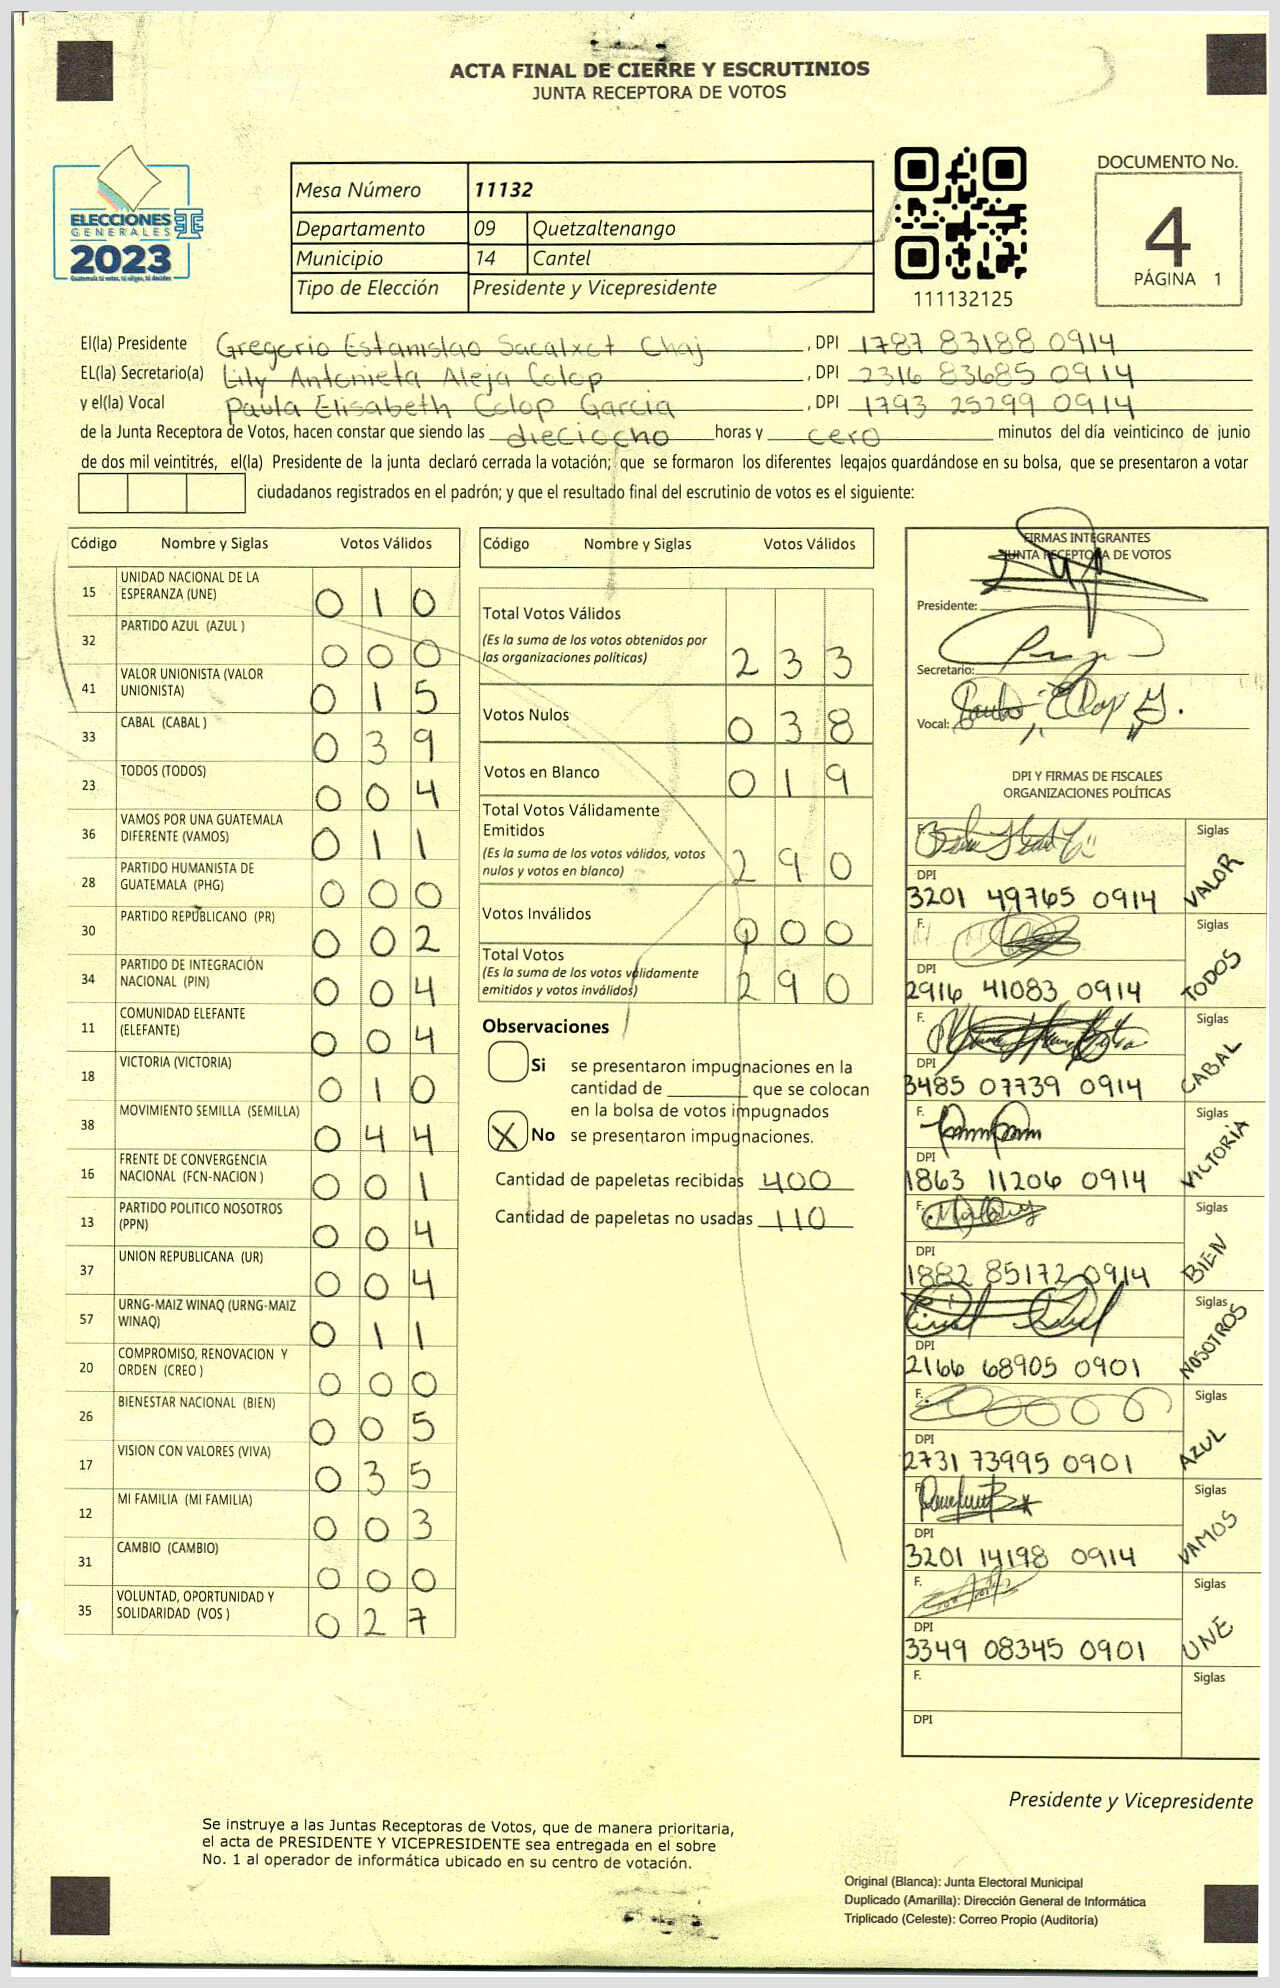 ACTA FINAL DE CIERRE Y ESCRUTINIOS
JUNTA RECEPTORA DE VOTOS
ELECCIONES
GENERALES
2023
Guatemala tú votas, tú eliges, tú decides
Mesa Número 11132
Departamento 09 Quetzaltenango
Municipio 14 Cantel
Tipo de Elección Presidente y Vicepresidente
111132125
DOCUMENTO No.
4
PÁGINA 1
El(la) Presidente Gregorio Estanislao Sacalxot Chaj, DPI 1787 83188 0914
EL(la) Secretario(a) Lily Antonieta Aleja Colop, DPI 2316 83685 0914
y el(la) Vocal Paula Elisabeth Colop Garcia, DPI 1793 25299 0914
de la Junta Receptora de Votos, hacen constar que siendo las dieciocho horas y cero minutos del día veinticinco de junio
de dos mil veintitrés, el(la) Presidente de la junta declaró cerrada la votación; que se formaron los diferentes legajos guardándose en su bolsa, que se presentaron a votar
ciudadanos registrados en el padrón; y que el resultado final del escrutinio de votos es el siguiente:
Código Nombre y Siglas Votos Válidos
15 UNIDAD NACIONAL DE LA ESPERANZA (UNE) 0 1 0
32 PARTIDO AZUL (AZUL ) 0 0 0
41 VALOR UNIONISTA (VALOR UNIONISTA) 0 1 5
33 CABAL (CABAL ) 0 3 9
23 TODOS (TODOS) 0 0 4
36 VAMOS POR UNA GUATEMALA DIFERENTE (VAMOS) 0 1 1
28 PARTIDO HUMANISTA DE GUATEMALA (PHG) 0 0 0
30 PARTIDO REPUBLICANO (PR) 0 0 2
34 PARTIDO DE INTEGRACIÓN NACIONAL (PIN) 0 0 4
11 COMUNIDAD ELEFANTE (ELEFANTE) 0 0 4
18 VICTORIA (VICTORIA) 0 1 0
38 MOVIMIENTO SEMILLA (SEMILLA) 0 4 4
16 FRENTE DE CONVERGENCIA NACIONAL (FCN-NACION ) 0 0 1
13 PARTIDO POLITICO NOSOTROS (PPN) 0 0 4
37 UNION REPUBLICANA (UR) 0 0 4
57 URNG-MAIZ WINAQ (URNG-MAIZ WINAQ) 0 1 1
20 COMPROMISO, RENOVACION Y ORDEN (CREO ) 0 0 0
26 BIENESTAR NACIONAL (BIEN) 0 0 5
17 VISION CON VALORES (VIVA) 0 3 5
12 MI FAMILIA (MI FAMILIA) 0 0 3
31 CAMBIO (CAMBIO) 0 0 0
35 VOLUNTAD, OPORTUNIDAD Y SOLIDARIDAD (VOS ) 0 2 7
Código Nombre y Siglas Votos Válidos
Total Votos Válidos
(Es la suma de los votos obtenidos por
las organizaciones políticas) 2 3 3
Votos Nulos 0 3 8
Votos en Blanco 0 1 9
Total Votos Válidamente
Emitidos
(Es la suma de los votos válidos, votos
nulos y votos en blanco) 2 9 0
Votos Inválidos 0 0 0
Total Votos
(Es la suma de los votos válidamente
emitidos y votos inválidos) 2 9 0
Observaciones
Si se presentaron impugnaciones en la
cantidad de ________ que se colocan
en la bolsa de votos impugnados
X No se presentaron impugnaciones.
Cantidad de papeletas recibidas 400
Cantidad de papeletas no usadas 110
FIRMAS INTEGRANTES
JUNTA RECEPTORA DE VOTOS
Presidente:
Secretario:
Vocal:
DPI Y FIRMAS DE FISCALES
ORGANIZACIONES POLÍTICAS
F. Siglas VALOR
DPI
3201 49765 0914
F. Siglas TODOS
DPI
2916 41083 0914
F. Siglas CABAL
DPI
3485 07739 0914
F. Siglas VICTORIA
DPI
1863 11206 0914
F. Siglas BIEN
DPI
1882 85172 0914
F. Siglas NOSOTROS
DPI
2166 68905 0901
F. Siglas AZUL
DPI
2731 73995 0901
F. Siglas VAMOS
DPI
3201 14198 0914
F. Siglas UNE
DPI
3349 08345 0901
F. Siglas
DPI
Presidente y Vicepresidente
Se instruye a las Juntas Receptoras de Votos, que de manera prioritaria,
el acta de PRESIDENTE Y VICEPRESIDENTE sea entregada en el sobre
No. 1 al operador de informática ubicado en su centro de votación.
Original (Blanca): Junta Electoral Municipal
Duplicado (Amarilla): Dirección General de Informática
Triplicado (Celeste): Correo Propio (Auditoría)